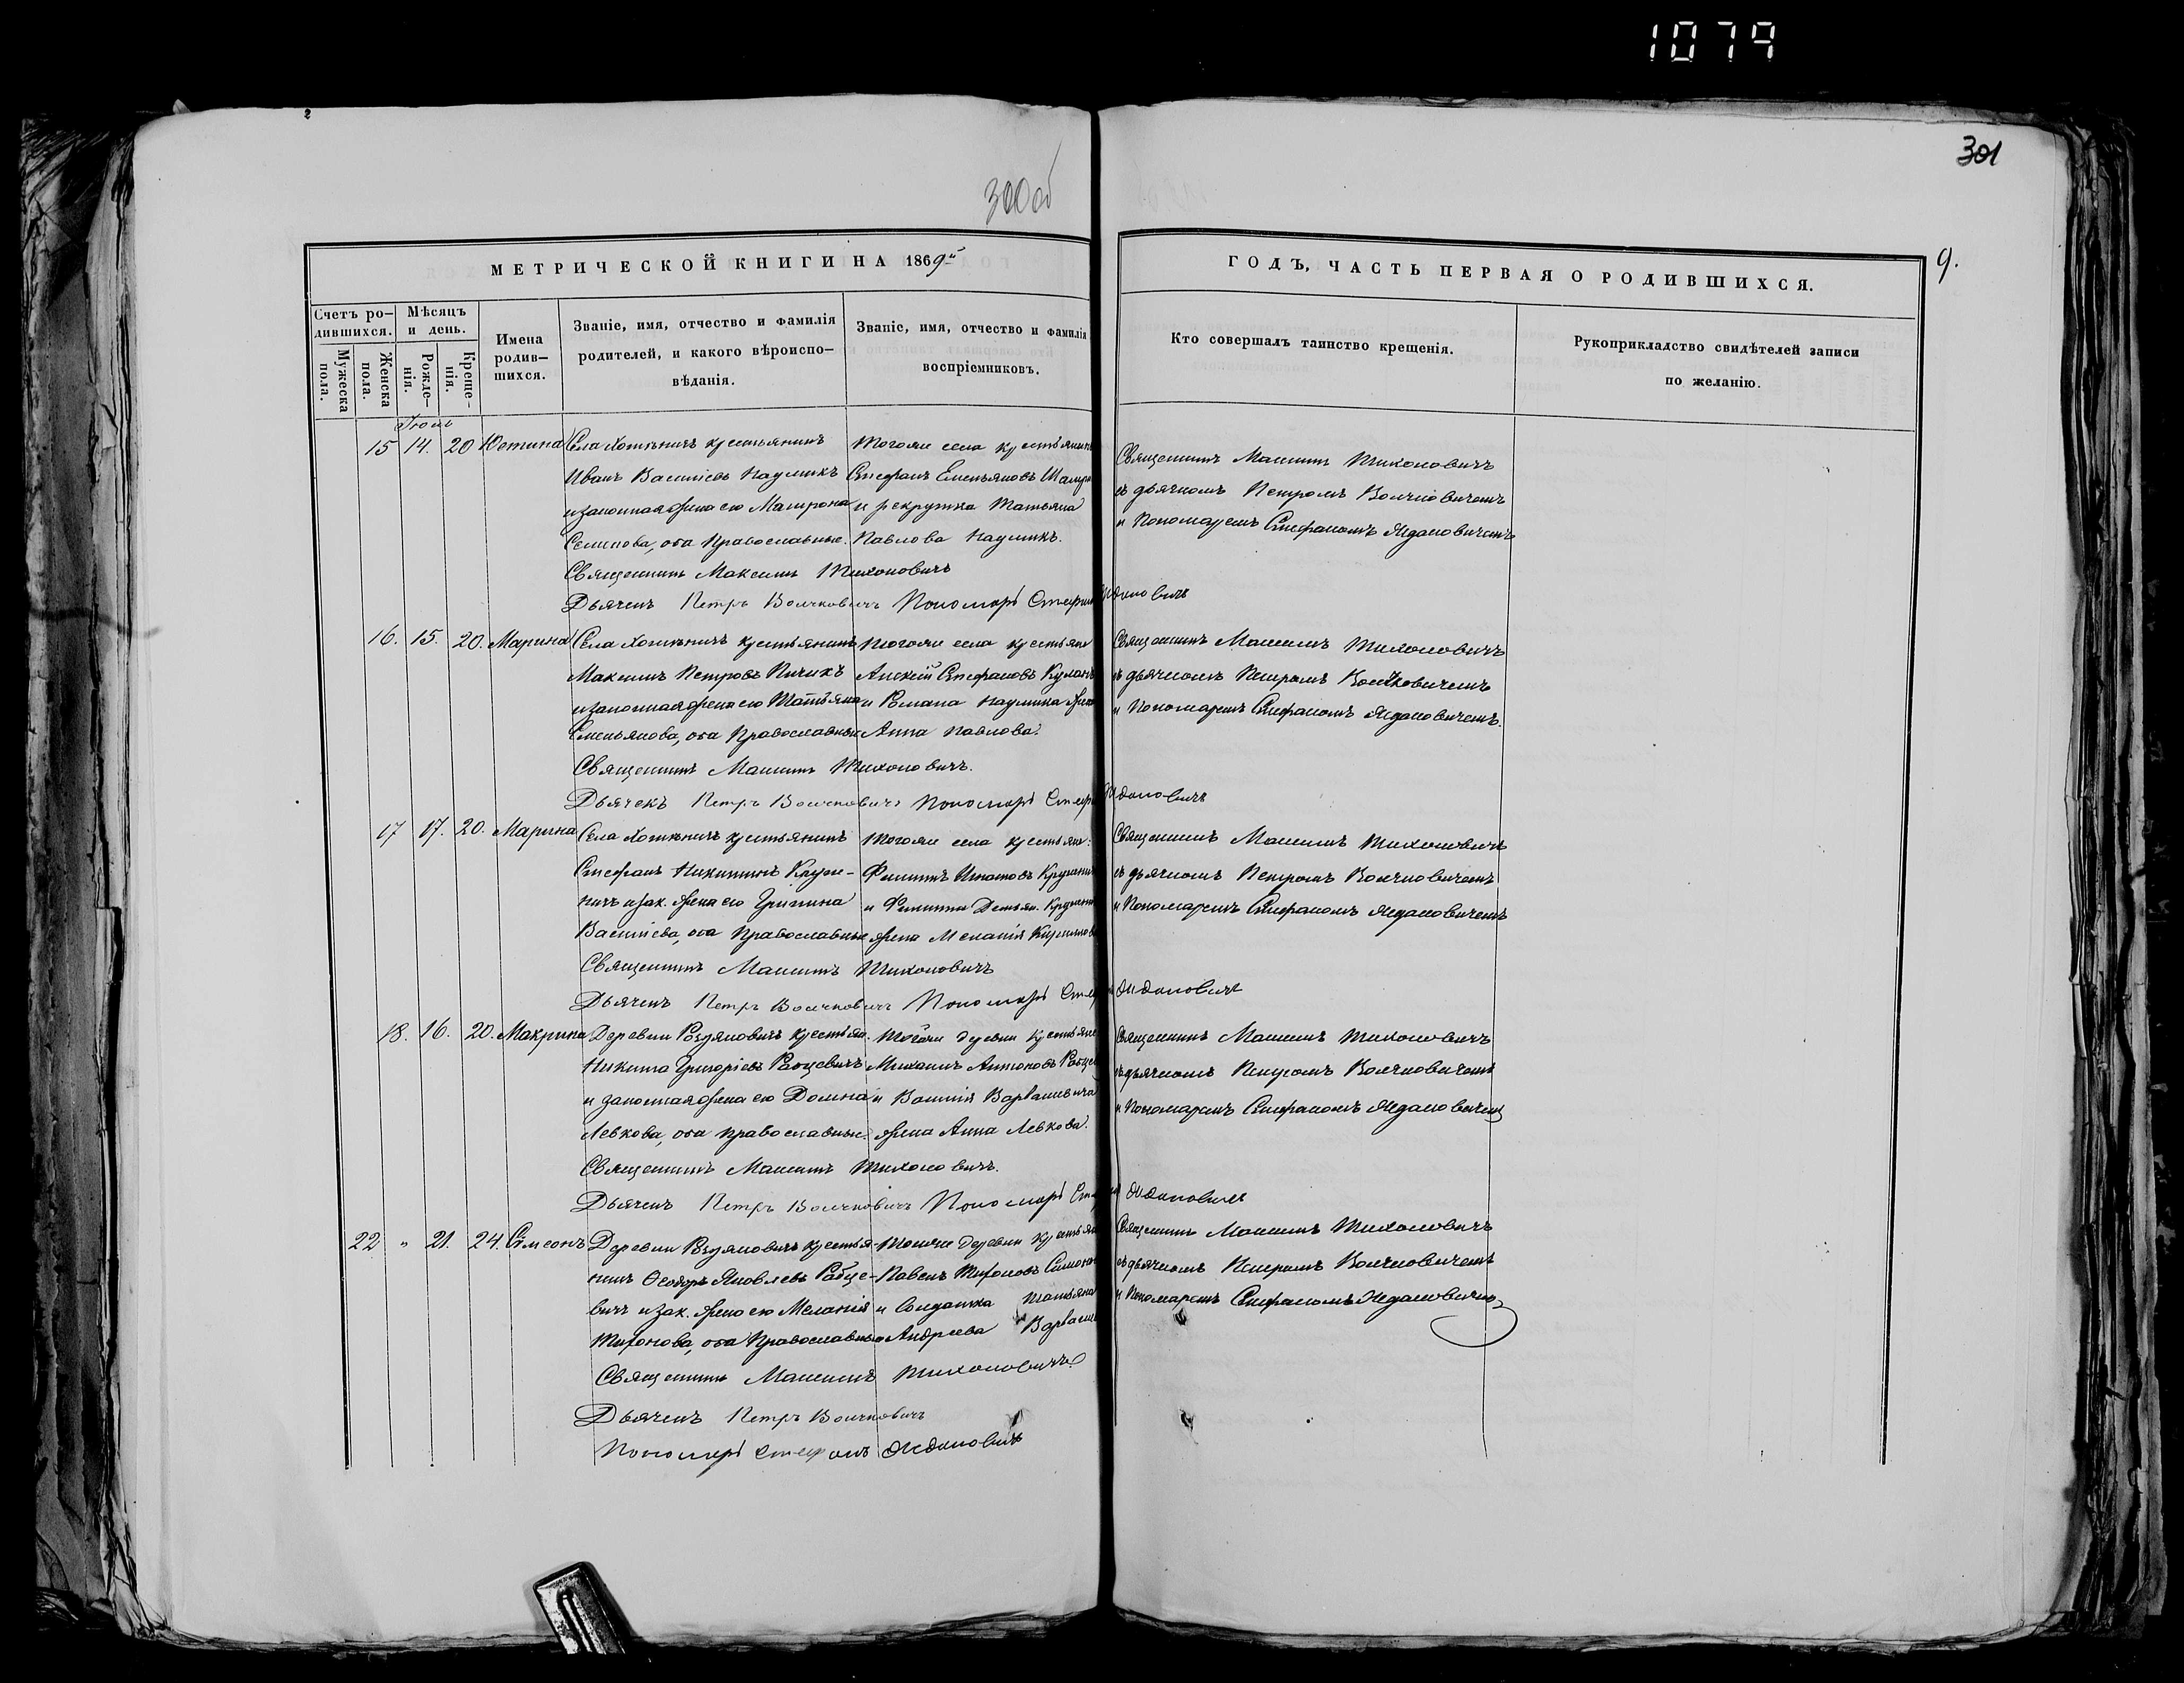 1079
301
300об
МЕТРИЧЕСКОЙ КНИГИ НА 1869й
ГОДЪ, ЧАСТЬ ПЕРВАЯ О РОДИВШИХСЯ.
9.
Счетъ ро-
дившихся.
Мужеска
пола.
Женска
пола.
Мѣсяцъ
и день.
Рожде-
нія.
Креще-
нія.
Имена
родив-
шихся.
Званіе, имя, отчество и фамилія
родителей, и какого вѣроиспо-
вѣданія.
Званіе, имя, отчество и фамилія
воспріемниковъ.
Кто совершалъ таинство крещенія.
Рукоприкладство свидѣтелей записи
по желанію.
15 14. 20 Устина
Села Хотыничъ крестьянинъ
Иванъ Васильевъ Наумикъ
и законная жена его
Семенова, оба Православные.
Тогоже села
Стефанъ Емельяновъ
и рекрутка Татьяна
Павлова Наумикъ.
Священникъ Максимъ Тихоновичъ
съ дьячкомъ Петромъ Волчковичемъ
и Пономаремъ Стефаномъ Ждановичемъ
Священникъ Максимъ Тихоновичъ
Дьячекъ Петръ Волчковичъ Пономарь Ждановичъ
16. 15. 20. Марина
Села Хотыничъ крестьянинъ
Максимъ Петровъ
и законная жена его Татьяна
Емельянова, оба Православные
Тогоже села
Алексій Стефановъ
и Романа Наумика
Анна Павлова.
Священникъ Максимъ Тихоновичъ
съ дьячкомъ Петромъ Волчковичемъ
и Пономаремъ Стефаномъ Ждановичемъ.
Священникъ Максимъ Тихоновичъ.
Дьячекъ Петръ Волчковичъ Пономарь Ждановичъ
17 17. 20. Марина
Села Хотыничъ крестьянинъ
Стефанъ Никитинъ
и зак. жена его
Васильева, оба Православные
Тогоже села
Филиппъ Игнатовъ
и Филиппа Демьян.
жена Меланія
Священникъ Максимъ Тихоновичъ
съ дьячкомъ Петромъ Волчковичемъ
и Пономаремъ Стефаномъ Ждановичемъ
Священникъ Максимъ Тихоновичъ
Дьячекъ Петръ Волчковичъ Пономарь Ждановичъ
18. 16. 20. Макрина
Деревни Раздяловичъ крестьян.
Никита Григорієвъ Рабцевичъ
и законная жена его Домна
Левкова, оба православные.
Тогоже деревни
Михаилъ Антоновъ
и Василія Варвашевича
жена Анна Левкова.
Священникъ Максимъ Тихоновичъ
съ дьячкомъ Петромъ Волчковичемъ
и Пономаремъ Стефаномъ Ждановичемъ
Священникъ Максимъ Тихоновичъ.
Дьячекъ Петръ Волчковичъ Пономарь Ждановичъ
22 " 21. 24. Сѵмеонъ
Деревни Раздяловичъ крестья-
нинъ Ѳеодоръ Яковлевъ Рабце-
вичъ и зак. жена его Меланія
Тихонова, оба Православные
Тогоже деревни
Павелъ Тихоновъ
и Солдатка Татьяна
Андреева
Священникъ Максимъ Тихоновичъ
съ дьячкомъ Петромъ Волчковичемъ
и Пономаремъ Стефаномъ Ждановичемъ
Священникъ Максимъ Тихоновичъ.
Дьячекъ Петръ Волчковичъ
Пономарь Стефанъ Ждановичъ